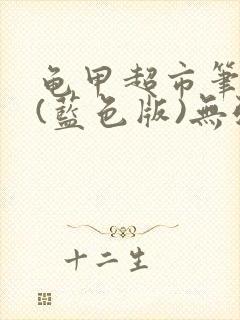 龟甲超市筆
(藍色版)無
十二生